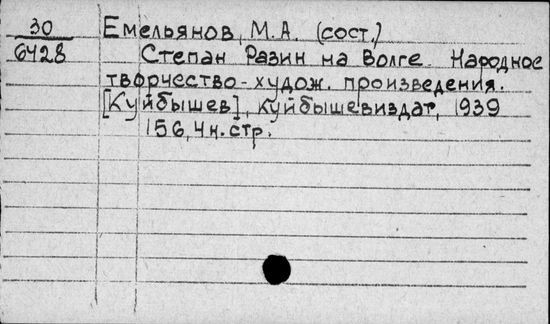 30
6428
Емельянов, М.А. (сост.)
Степан Разин на Волге. Народное
творчество - худож. произведения.
[Куйбышев], Куйбышевиздат, 1939
156, 4 н. стр.